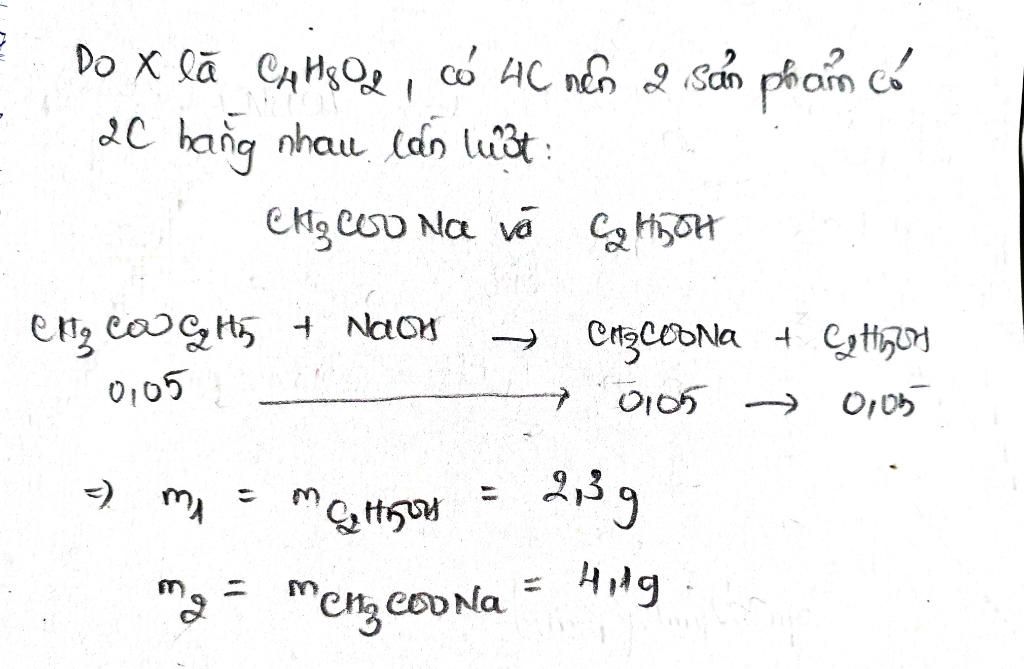 Do X là C₄H₈O₂, có 4C nên 2 sản phẩm có
2C bằng nhau lần lượt:
CH₃COONa và C₂H₅OH
CH₃COOC₂H₅ + NaOH → CH₃COONa + C₂H₅OH
0,05 → 0,05 → 0,05
=> m₁ = mC₂H₅OH = 2,3g
m₂ = mCH₃COONa = 4,1g